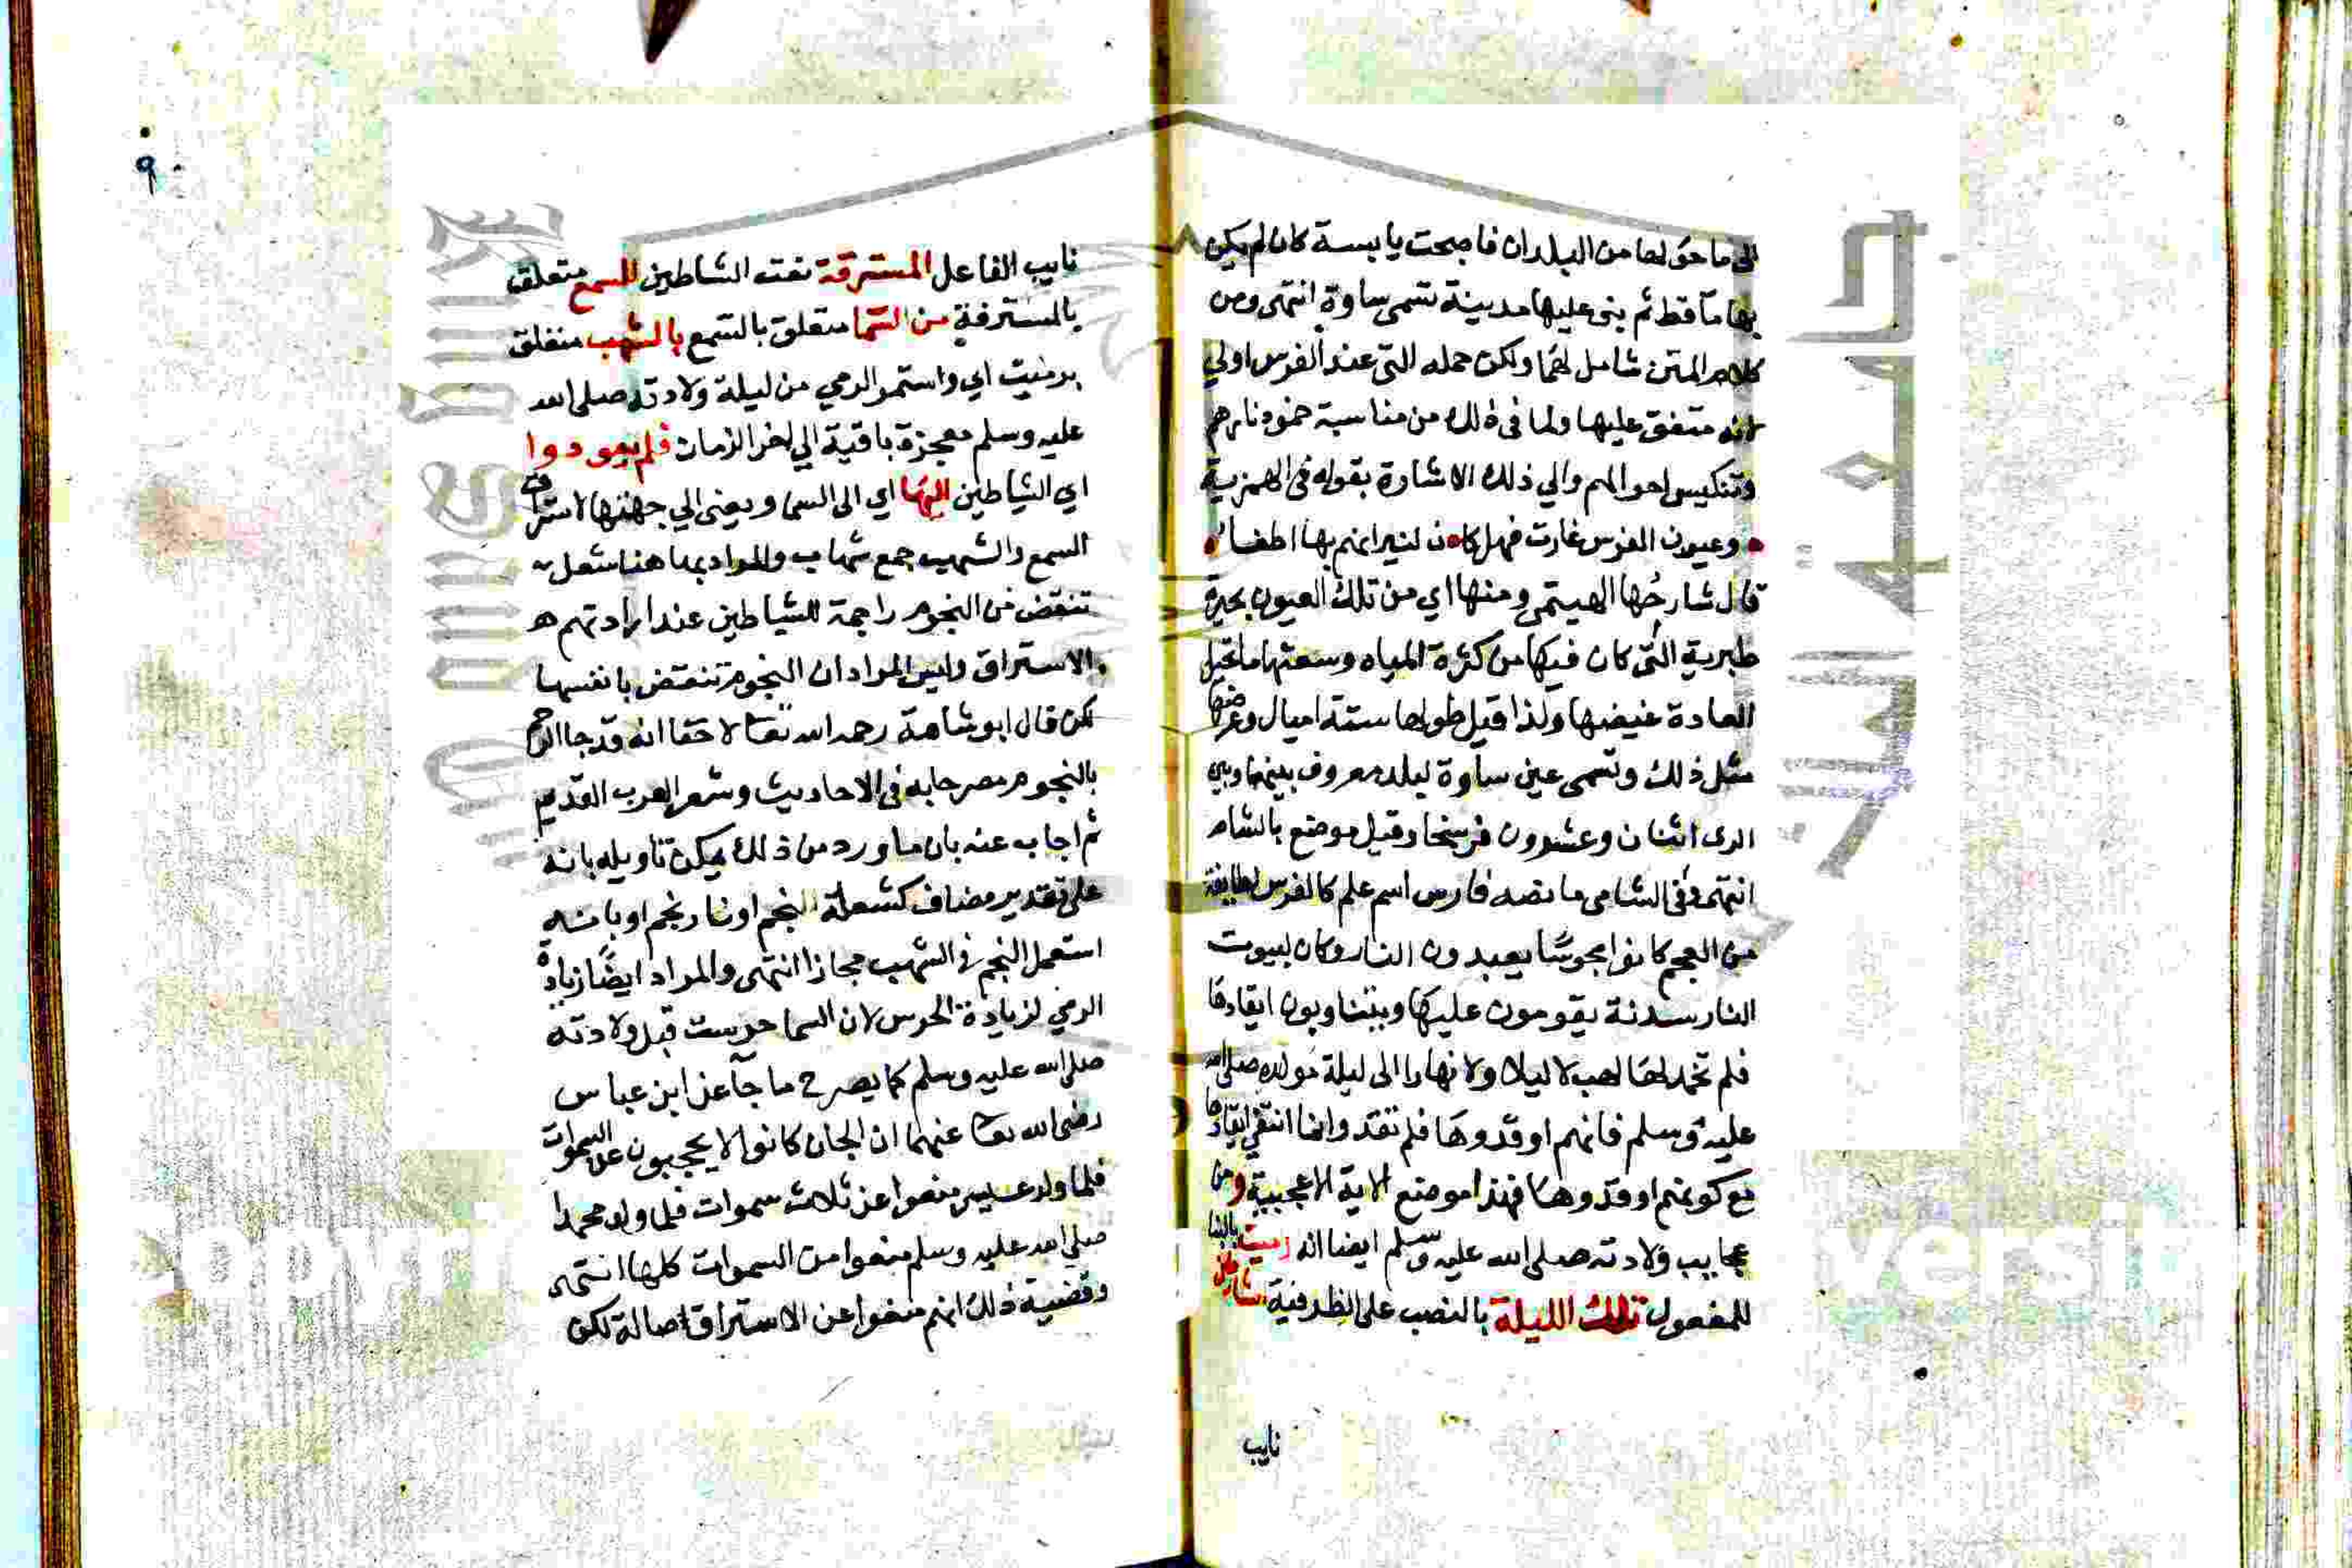 الى ما حولها من البلدان فاصبحت يابسة كان لم يكن
بها ماٌ قط ثم بنى عليها مدينة تسمى ساوة انتهى ومن
كلام المتن شامل لهما ولكن حمله التى عند الفرس اولي
لانه متفق عليها ولما فى ذلك من مناسبة خمود نارهم
وتنكيس احوالهم والي ذلك الاشارة بقوله فى الهمزية
وعيون الفرس غارت فهل كا ن لنيرانهم بها اطفاٌ
قال شارحُها الهيتمى ومنها اي من تلك العيون بحيرة
طبرية التى كان فيها من كثرة المياه وسعتها ما تحيل
العادة غيضها ولذا قيل طولها ستة اميال وعرضها
مثل ذلك وتسمى عين ساوة لبلد معروف بينها وبين
الرى اثنان وعشرون فرسخا وقيل موضع بالشام
انتهى وفى الشامى ما نصه فارس اسم علم كالفرس لطايفة
من العجم كانوا مجوسًا يعبدون النار وكان لبيوت
النار سدنة يقومون عليها ويتناوبون ايقادها
فلم تخمد لها لهب لا ليلا ولا نهارا الى ليلة مولده صلى الله
عليه وسلم فانهم اوقدوها فلم تقد وانما انتفى ايقادها
مع كونهم اوقدوها فهذا موضع الاية الاعجيبية ومن
عجايب ولادته صلى الله عليه وسلم ايضا انه رميت بالبنا
للمفعول تلك الليلة بالنصب على الظرفية
نايب
٩
نايب الفاعل المسترقة نعت الشاطين للسمع متعلق
بالمسترقة من السما متعلق بالسمع بالشهب متعلق
برميت اي واستمر الرمي من ليلة ولادته صلى الله
عليه وسلم معجزة باقية الي اخر الزمان فلم يعودوا
اي الشياطين اليها اي الى السما ويعنى الي جهتها لاستراق
السمع والشهب جمع شهاب والمراد بها هنا شعل
تنقض من النجوم راجمة للشياطين عند ارادتهم
الاستراق وليس المراد ان النجوم تنقض بانفسها
لكن قال ابو شامة رحمه الله تعا لا خفا انه قد جا الرجم
بالنجوم مصرحا به فى الاحاديث وشعر العرب القديم
ثم اجاب عنه بان ما ورد من ذلك يمكن تاويله بانه
على تقدير مضاف كشعلة النجم او نار نجم او بانه
استعمل النجم فى الشهب مجازا انتهى والمراد ايضًا زيادة
الرمي لزيادة الحرس لان السما حرست قبل ولادته
صلى الله عليه وسلم كما يصرح ما جآ عن ابن عباس
رضى الله تعا عنهما ان الجان كانوا لا يحجبون عن السموات
فلما ولد عيسى منعوا عن ثلاث سموات فلما ولد محمدا
صلي الله عليه وسلم منعوا من السموات كلها انتهى
وقضية ذلك انهم منعوا عن الاستراق اصالة لكن